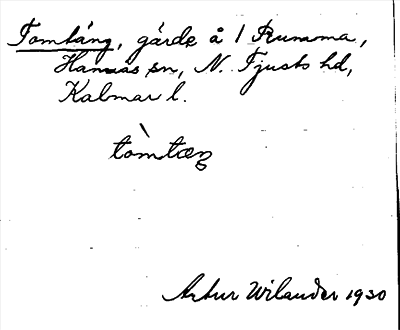 Tomtäng, gärde å 1 Rumma,
Hannäs sn, N. Tjusts hd,
Kalmar l.
tòmtæŋ
Artur Wilander 1930